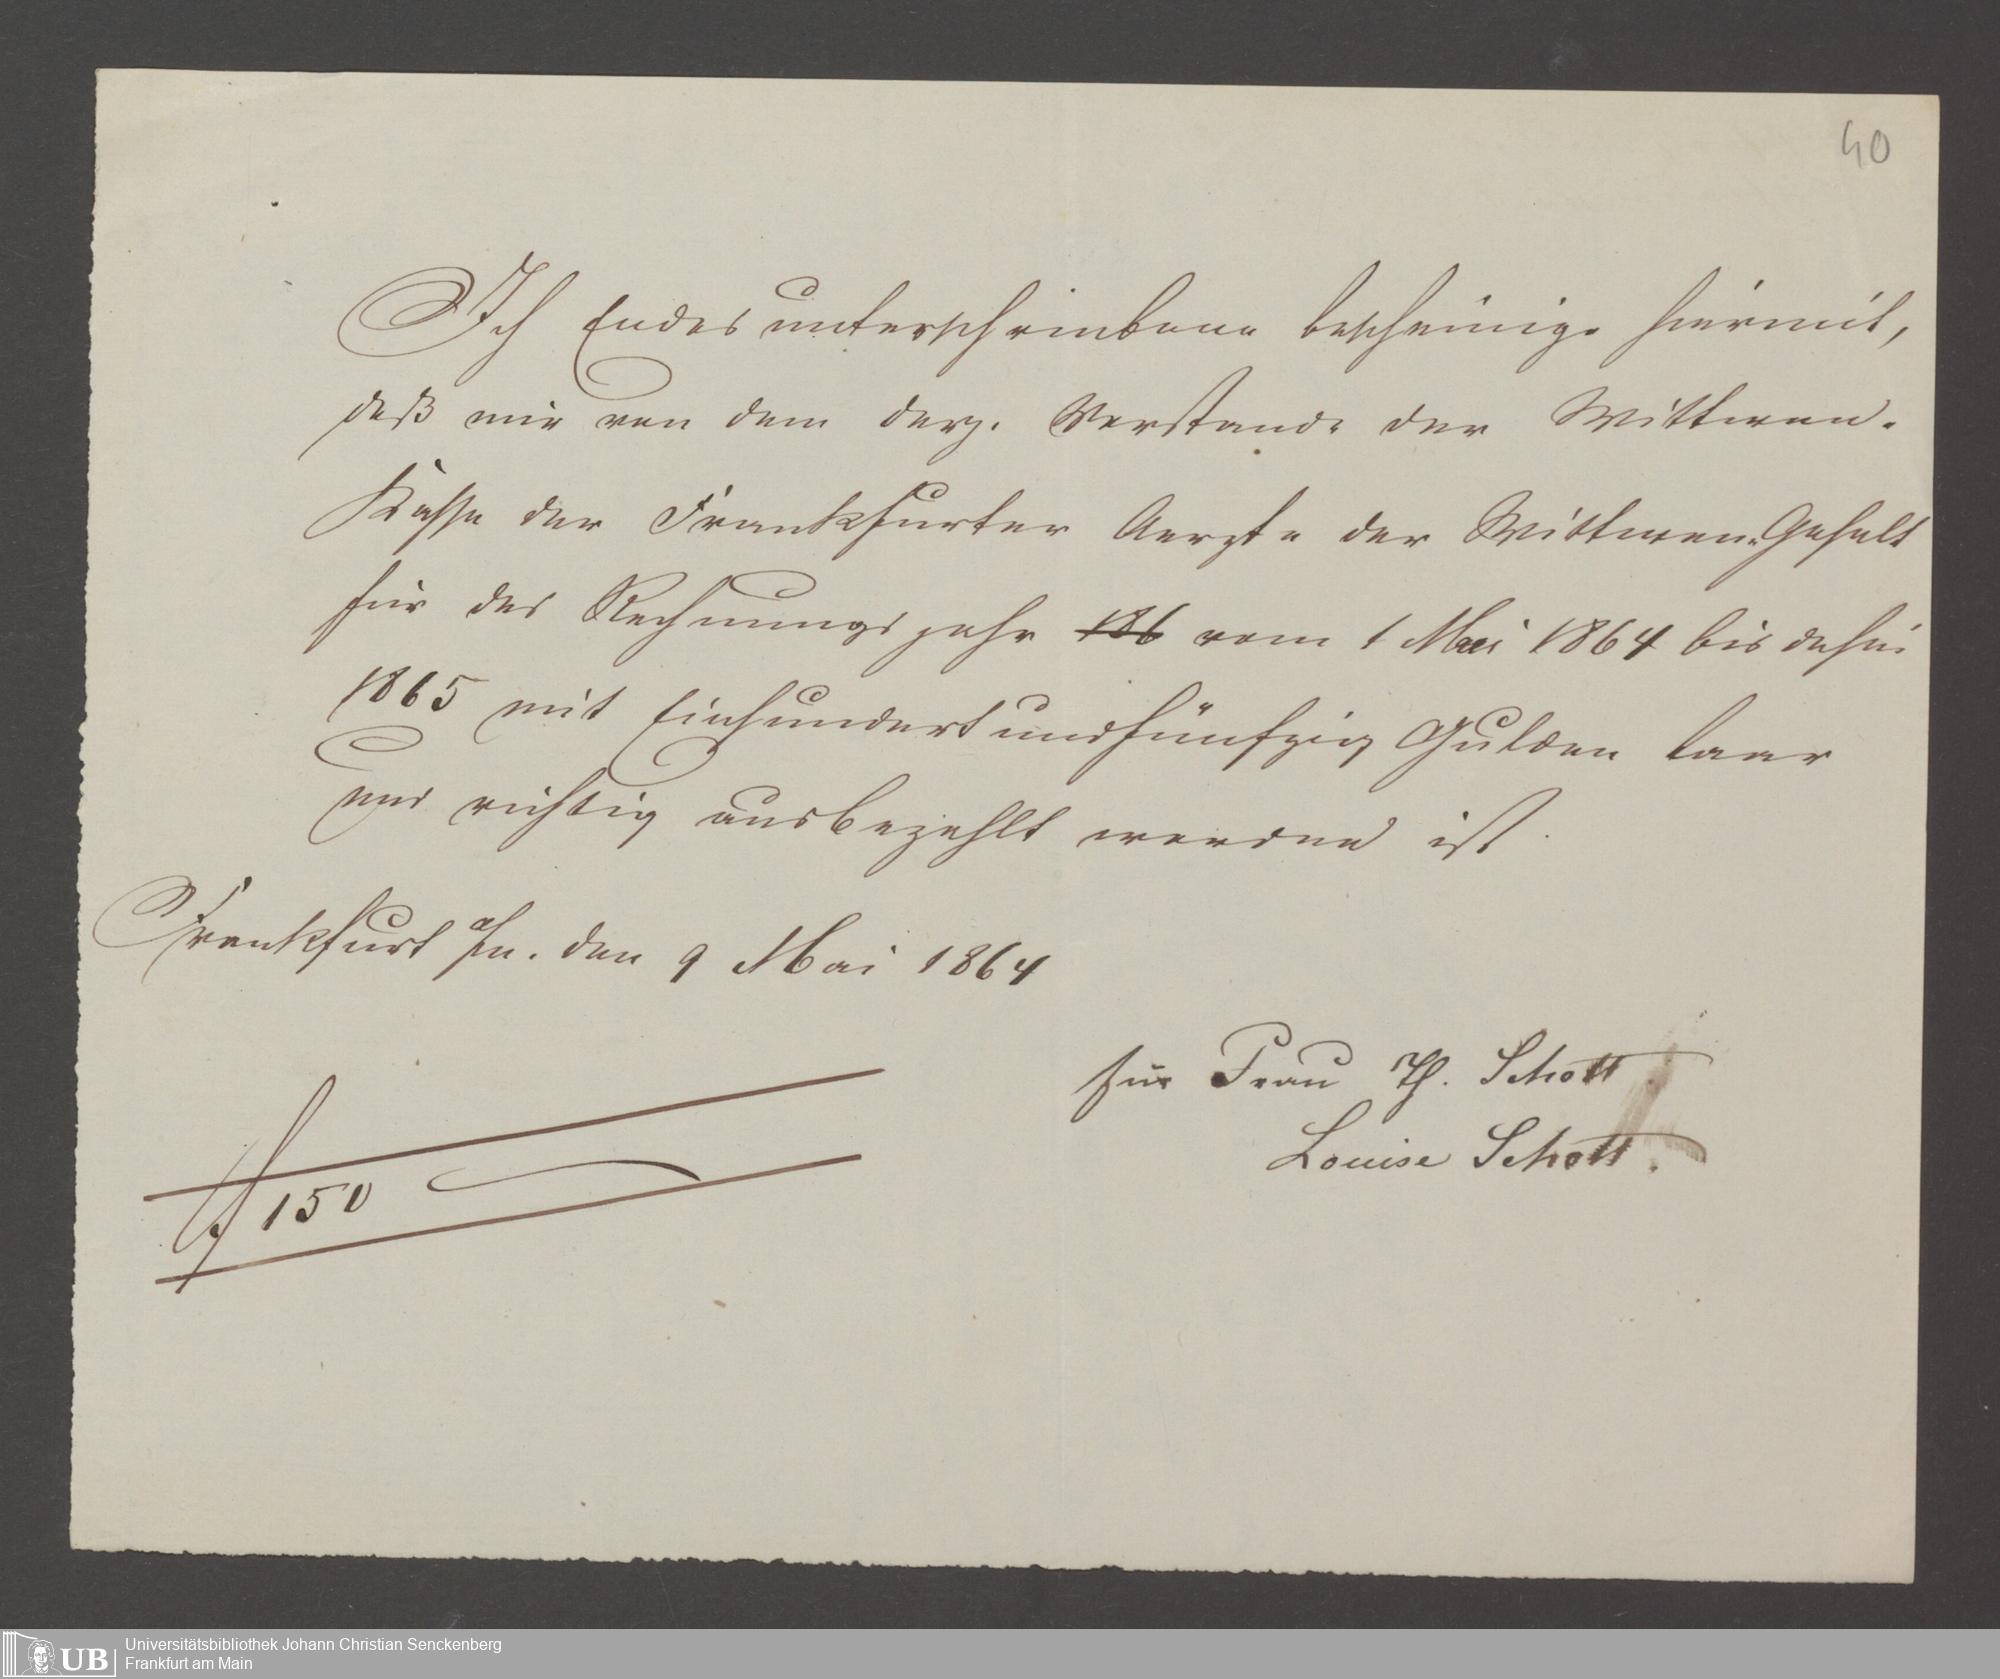 40
Ich Endesunterschriebene bescheinige hiermit,
daß mir von dem derz. Vorstande der Wittwen-
Kasse der Frankfurter Aerzte der Wittwen-Gehalt
für das Rechnungsjahr 186 vom 1 Mai 1864 bis dahin
1865 mit Einhundertundfünfzig Gulden baar
und richtig ausbezahlt worden ist.
Frankfurt a/m. den 9 Mai 1864
für Frau Th. Schott
Louise Schott.
f 150
UB Universitätsbibliothek Johann Christian Senckenberg
Frankfurt am Main